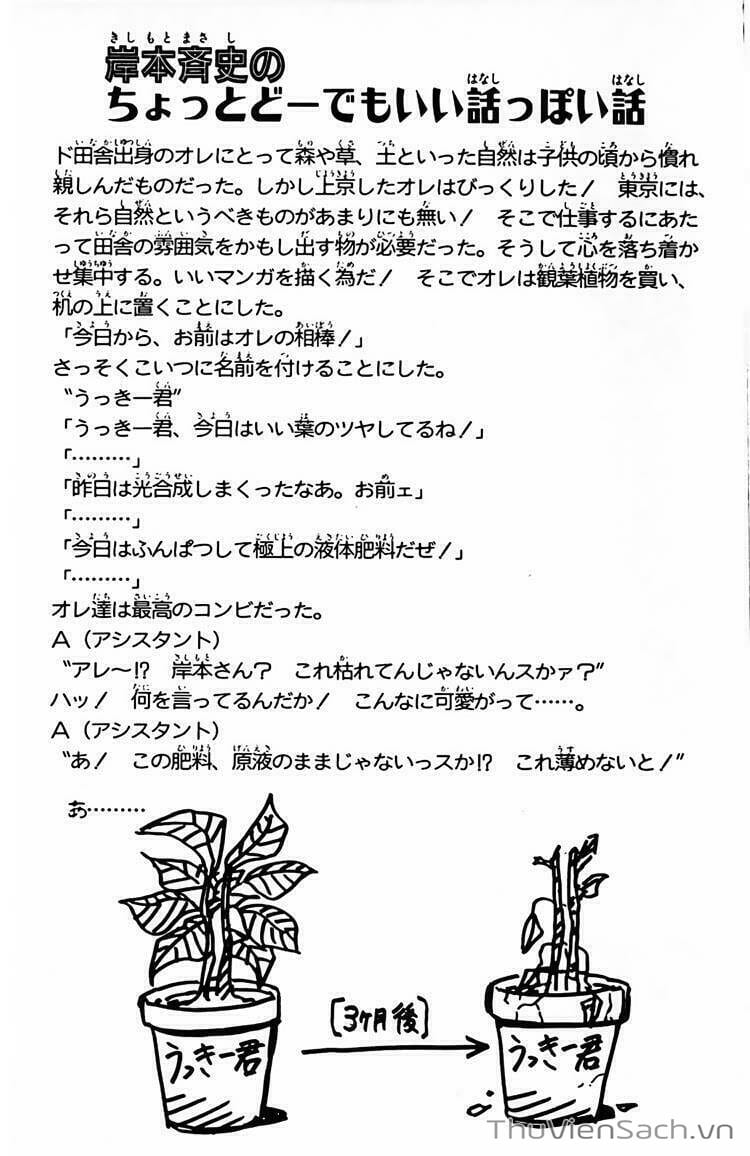 岸本斉史の
ちょっとどーでもいい話っぽい話
ド田舎出身のオレにとって森や草、土といった自然は子供の頃から慣れ
親しんだものだった。しかし上京したオレはびっくりした！　東京には、
それら自然というべきものがあまりにも無い！　そこで仕事するにあた
って田舎の雰囲気をかもし出す物が必要だった。そうして心を落ち着か
せ集中する。いいマンガを描く為だ！　そこでオレは観葉植物を買い、
机の上に置くことにした。
「今日から、お前はオレの相棒！」
さっそくこいつに名前を付けることにした。
〝うっきー君〟
「うっきー君、今日はいい葉のツヤしてるね！」
「………」
「昨日は光合成しまくったなあ。お前ェ」
「………」
「今日はふんぱつして極上の液体肥料だぜ！」
「………」
オレ達は最高のコンビだった。
A（アシスタント）
〝アレ〜!?　岸本さん？　これ枯れてんじゃないんスかァ？〟
ハッ！　何を言ってるんだか！　こんなに可愛がって……。
A（アシスタント）
〝あ！　この肥料、原液のままじゃないっスか!?　これ薄めないと！〟
あ………
[3ヶ月後]
うっきー君
うっきー君
ThuVienSach.vn